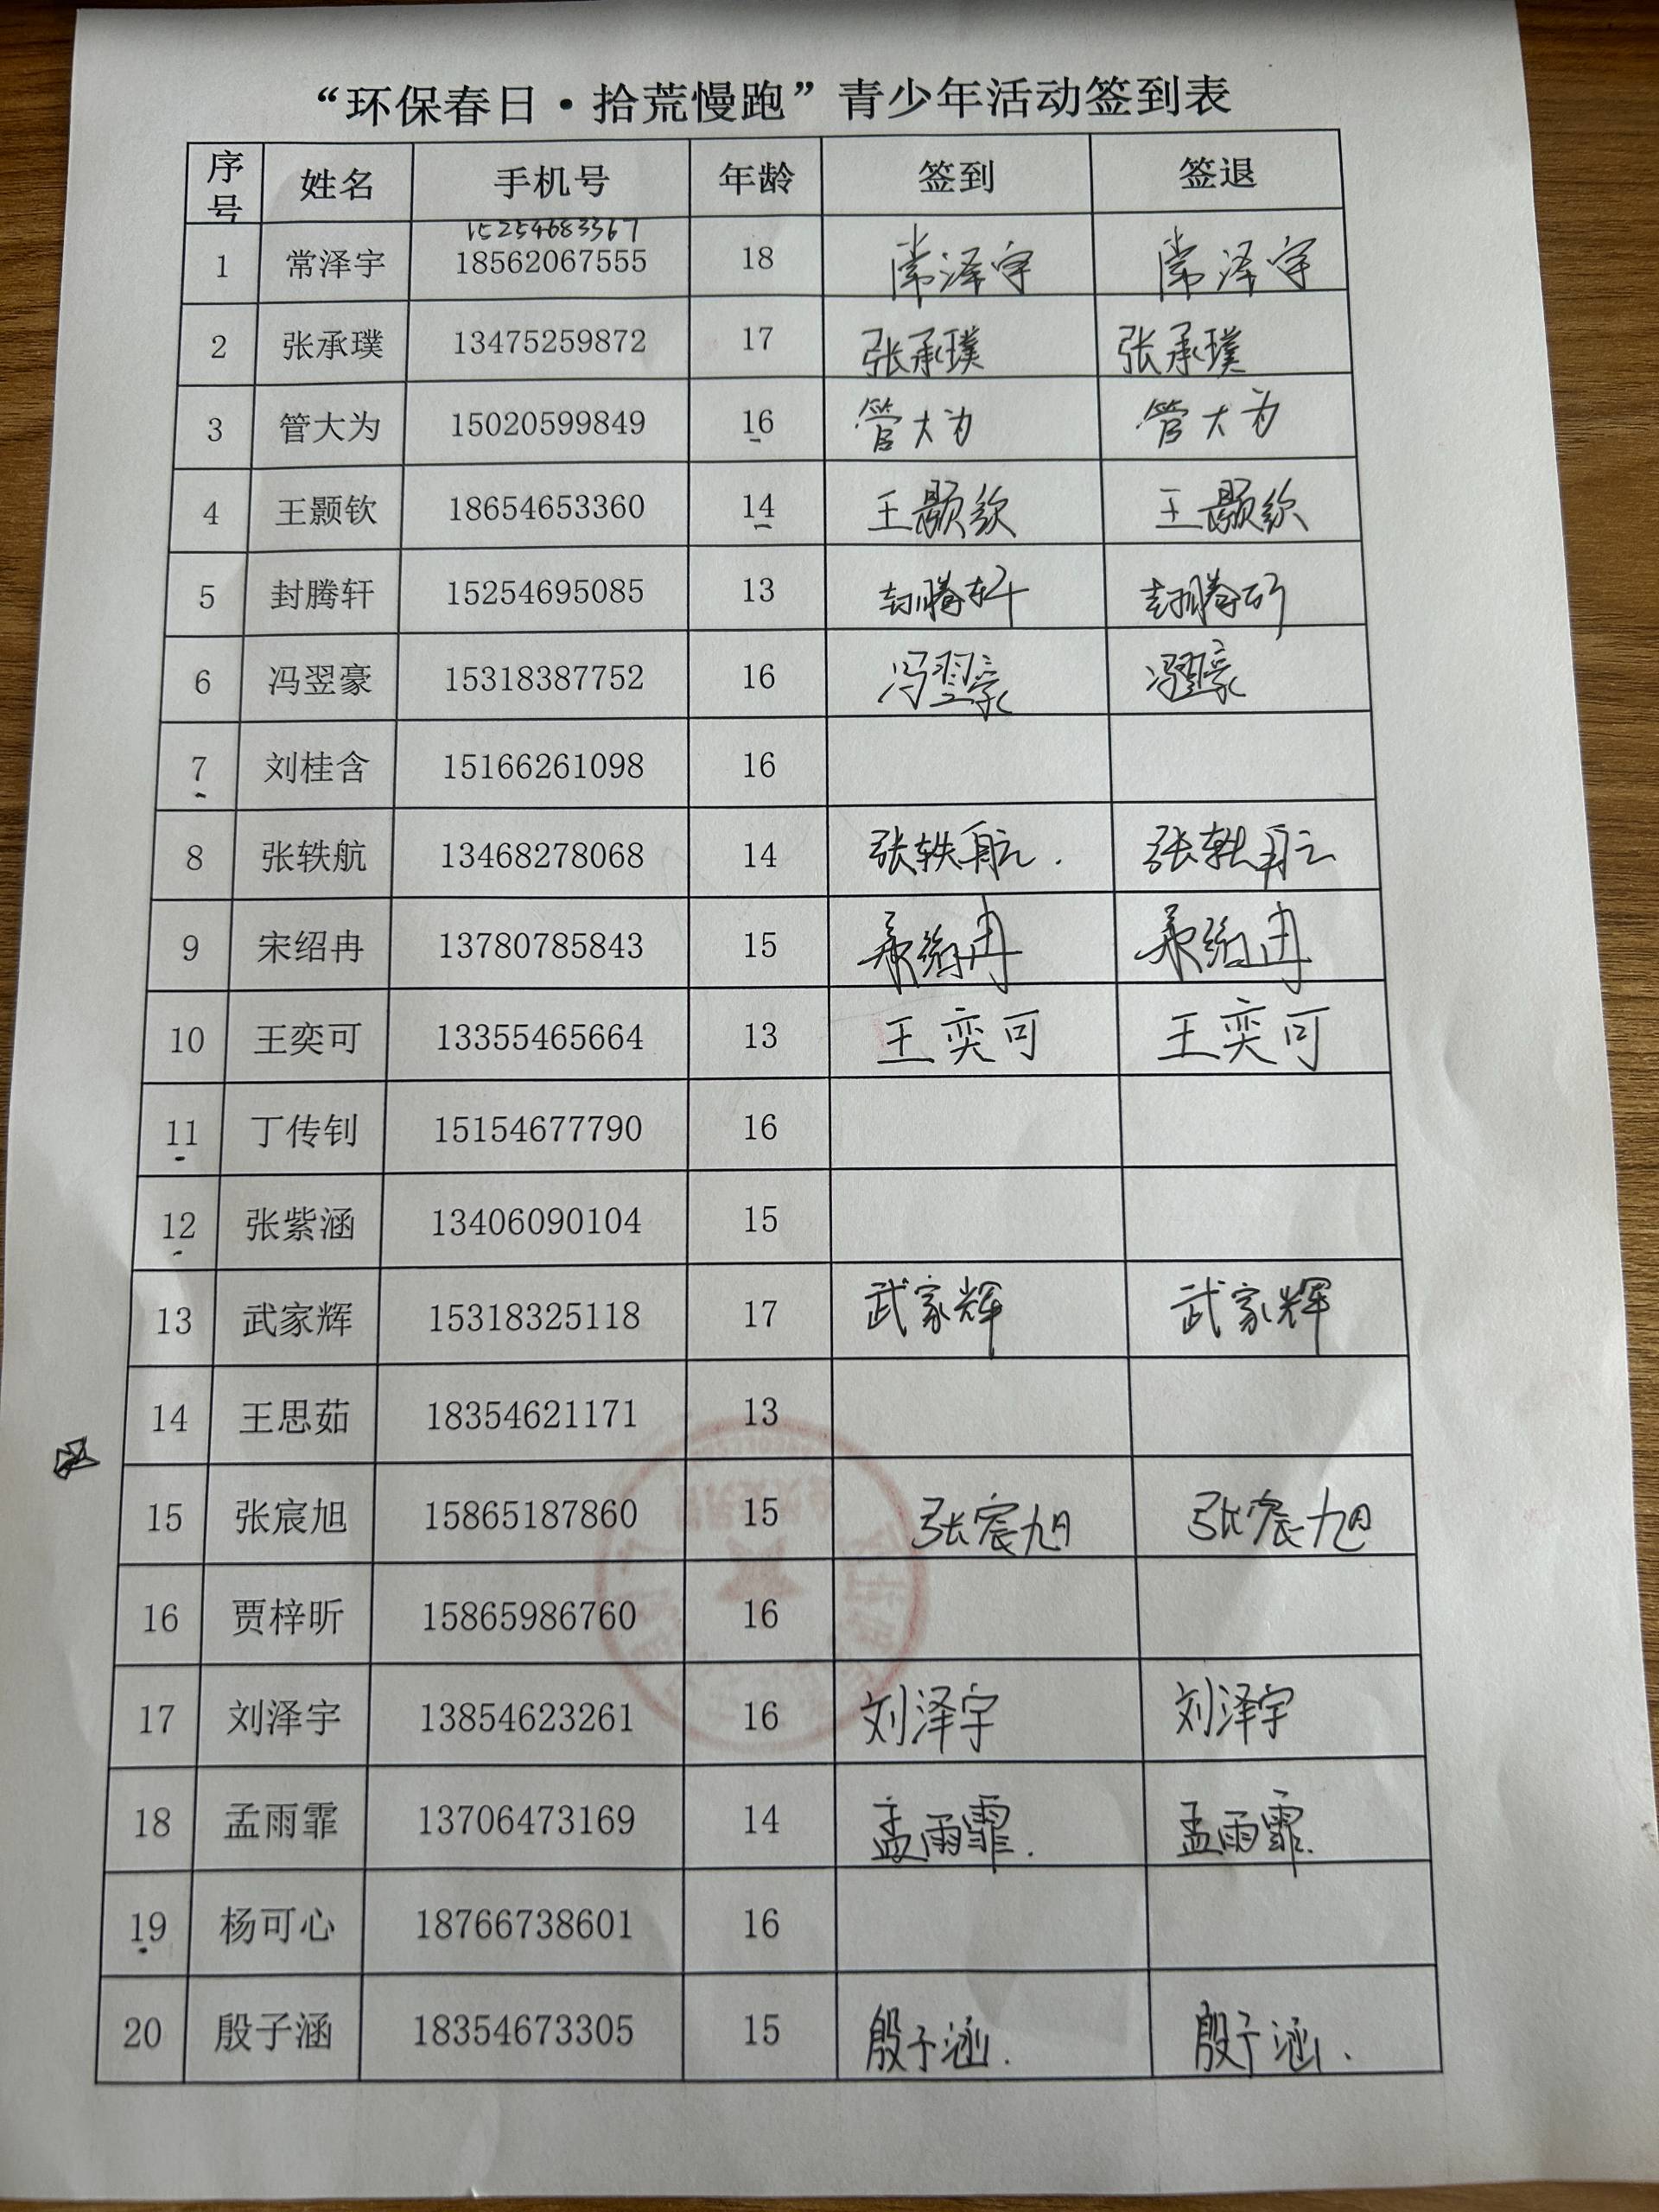 “环保春日·拾荒慢跑”青少年活动签到表
序号 姓名 手机号 年龄 签到 签退
15254683367
1 常泽宇 18562067555 18 常泽宇 常泽宇
2 张承璞 13475259872 17 张承璞 张承璞
3 管大为 15020599849 16 管大为 管大为
4 王颢钦 18654653360 14 王颢钦 王颢钦
5 封腾轩 15254695085 13 封腾轩 封腾轩
6 冯翌豪 15318387752 16 冯翌豪 冯翌豪
7 刘桂含 15166261098 16
8 张轶航 13468278068 14 张轶航. 张轶航
9 宋绍冉 13780785843 15 宋绍冉 宋绍冉
10 王奕可 13355465664 13 王奕可 王奕可
11 丁传钊 15154677790 16
12 张紫涵 13406090104 15
13 武家辉 15318325118 17 武家辉 武家辉
14 王思茹 18354621171 13
15 张宸旭 15865187860 15 张宸旭 张宸旭
16 贾梓昕 15865986760 16
17 刘泽宇 13854623261 16 刘泽宇 刘泽宇
18 孟雨霏 13706473169 14 孟雨霏. 孟雨霏.
19 杨可心 18766738601 16
20 殷子涵 18354673305 15 殷子涵. 殷子涵.